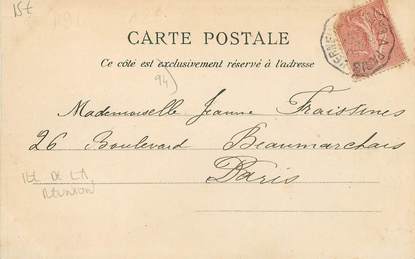 15€
CARTE POSTALE
Ce côté est exclusivement réservé à l'adresse
94)
Mademoiselle Jeanne Fraistines
26 Boulevard Beaumarchais
Paris
ILE DE LA
REUNION